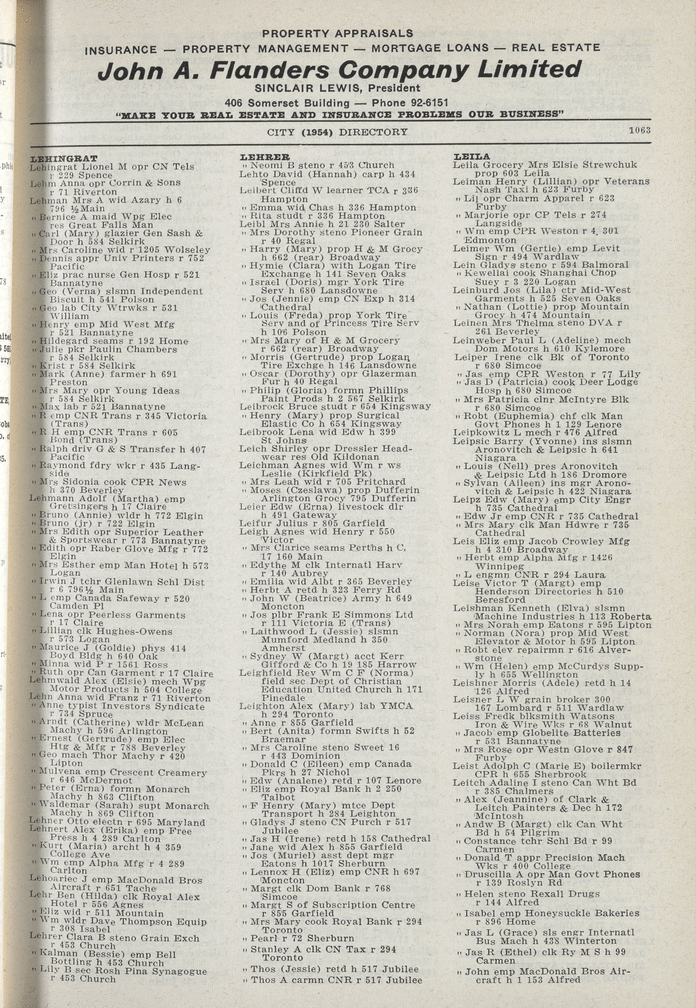 PROPERTY APPRAISALS
INSURANCE — PROPERTY MANAGEMENT — MORTGAGE LOANS — REAL ESTATE
John A. Flanders Company Limited
SINCLAIR LEWIS, President
406 Somerset Building — Phone 92-6151
"MAKE YOUR REAL ESTATE AND INSURANCE PROBLEMS OUR BUSINESS"
CITY (1954) DIRECTORY 1063
LEHINGRAT
Lehingrat Lionel M opr CN Tels
r 229 Spence
Lehm Anna opr Corrin & Sons
r 71 Riverton
Lehman Mrs A wid Azary h 6
796 ½ Main
" Bernice A maid Wpg Elec
res Great Falls Man
" Carl (Mary) glazier Gen Sash &
Door h 584 Selkirk
" Mrs Caroline wid r 1205 Wolseley
" Dennis appr Univ Printers r 752
Pacific
" Eliz prac nurse Gen Hosp r 521
Bannatyne
" Geo (Verna) slsmn Independent
Biscuit h 541 Polson
" Geo lab City Wtrwks r 531
William
" Henry emp Mid West Mfg
r 521 Bannatyne
" Hildegard seams r 192 Home
" Julie pkr Paulin Chambers
r 584 Selkirk
" Krist r 584 Selkirk
" Mark (Anne) farmer h 691
Preston
" Mrs Mary opr Young Ideas
r 584 Selkirk
" Max lab r 521 Bannatyne
" R emp CNR Trans r 345 Victoria
(Trans)
" R H emp CNR Trans r 605
Bond (Trans)
" Ralph driv G & S Transfer h 407
Pacific
" Raymond fdry wkr r 435 Lang-
side
" Mrs Sidonia cook CPR News
h 370 Beverley
Lehmann Adolf (Martha) emp
Gretsingers h 17 Claire
" Bruno (Annie) wldr h 772 Elgin
" Bruno (jr) r 722 Elgin
" Mrs Edith opr Superior Leather
& Sportswear r 773 Bannatyne
" Edith opr Raber Glove Mfg r 772
Elgin
" Mrs Esther emp Man Hotel h 573
Logan
" Irwin J tchr Glenlawn Schl Dist
r 6 796½ Main
" L emp Canada Safeway r 520
Camden Pl
" Lena opr Peerless Garments
r 17 Claire
" Lillian clk Hughes-Owens
r 573 Logan
" Maurice J (Goldie) phys 414
Boyd Bldg h 640 Oak
" Minna wid P r 1561 Ross
" Ruth opr Can Garment r 17 Claire
Lehmwald Alex (Elsie) mech Wpg
Motor Products h 504 College
Lehn Anna wid Franz r 71 Riverton
" Anne typist Investors Syndicate
r 734 Spruce
" Arndt (Catherine) wldr McLean
Machy h 596 Arlington
" Ernest (Gertrude) emp Elec
Htg & Mfg r 788 Beverley
" Geo mach Thor Machy r 420
Lipton
" Mulvena emp Crescent Creamery
r 646 McDermot
" Peter (Erna) formn Monarch
Machy h 863 Clifton
" Waldemar (Sarah) supt Monarch
Machy h 869 Clifton
Lehner Otto electn r 695 Maryland
Lehnert Alex (Erika) emp Free
Press h 4 289 Carlton
" Kurt (Maria) archt h 4 359
College Ave
" Wm emp Alpha Mfg r 4 289
Carlton
Lehoariec J emp MacDonald Bros
Aircraft r 651 Tache
Lehr Ben (Hilda) clk Royal Alex
Hotel r 556 Agnes
" Eliz wid r 511 Mountain
" Wm wldr Dave Thompson Equip
r 308 Isabel
Lehrer Clara B steno Grain Exch
r 453 Church
" Kalman (Bessie) emp Bell
Bottling h 453 Church
" Lily B sec Rosh Pina Synagogue
r 453 Church
LEHRER
" Neomi B steno r 453 Church
Lehto David (Hannah) carp h 434
Spence
Leibert Cliffd W learner TCA r 336
Hampton
" Emma wid Chas h 336 Hampton
" Rita studt r 336 Hampton
Leibl Mrs Annie h 21 230 Salter
" Mrs Dorothy steno Pioneer Grain
r 40 Regal
" Harry (Mary) prop H & M Grocy
h 662 (rear) Broadway
" Hymie (Clara) with Logan Tire
Exchange h 141 Seven Oaks
" Israel (Doris) mgr York Tire
Serv h 680 Lansdowne
" Jos (Jennie) emp CN Exp h 314
Cathedral
" Louis (Freda) prop York Tire
Serv and of Princess Tire Serv
h 106 Polson
" Mrs Mary of H & M Grocery
r 662 (rear) Broadway
" Morris (Gertrude) prop Logan
Tire Exchge h 146 Lansdowne
" Oscar (Dorothy) opr Glazerman
Fur h 40 Regal
" Philip (Gloria) formn Phillips
Paint Prods h 2 567 Selkirk
Leibrock Bruce studt r 654 Kingsway
" Henry (Mary) prop Surgical
Elastic Co h 654 Kingsway
Leibrook Lena wid Edw h 399
St Johns
Leich Shirley opr Dressler Head-
wear res Old Kildonan
Leichman Agnes wid Wm r ws
Leslie (Kirkfield Pk)
" Mrs Leah wid r 705 Pritchard
" Moses (Czeslawa) prop Dufferin
Arlington Grocy 795 Dufferin
Leier Edw (Erna) livestock dlr
h 491 Gateway
Leifur Julius r 805 Garfield
Leigh Agnes wid Henry r 550
Victor
" Mrs Clarice seams Perths h C,
17 160 Main
" Edythe M clk Internatl Harv
r 140 Aubrey
" Emilia wid Albt r 365 Beverley
" Herbt A retd h 323 Ferry Rd
" John W (Beatrice) Army h 649
Moncton
" Jos plbr Frank E Simmons Ltd
r 111 Victoria E (Trans)
" Laithwood L (Jessie) slsmn
Mumford Medland h 350
Amherst
" Sydney W (Margt) acct Kerr
Gifford & Co h 19 185 Harrow
Leighfield Rev Wm C F (Norma)
field sec Dept of Christian
Education United Church h 171
Pinedale
Leighton Alex (Mary) lab YMCA
h 294 Toronto
" Anne r 855 Garfield
" Bert (Anita) formn Swifts h 52
Braemar
" Mrs Caroline steno Sweet 16
r 443 Dominion
" Donald C (Eileen) emp Canada
Pkrs h 27 Nichol
" Edw (Analene) retd r 107 Lenore
" Eliz emp Royal Bank h 2 250
Talbot
" F Henry (Mary) mtce Dept
Transport h 284 Leighton
" Gladys J steno CN Purch r 517
Jubilee
" Jas H (Irene) retd h 158 Cathedral
" Jane wid Alex h 855 Garfield
" Jos (Muriel) asst dept mgr
Eatons h 1017 Sherburn
" Lennox H (Eliz) emp CNR h 697
Moncton
" Margt clk Dom Bank r 768
Simcoe
" Margt S of Subscription Centre
r 855 Garfield
" Mrs Mary cook Royal Bank r 294
Toronto
" Pearl r 72 Sherburn
" Stanley A clk CN Tax r 294
Toronto
" Thos (Jessie) retd h 517 Jubilee
" Thos A carmn CNR r 517 Jubilee
LEILA
Leila Grocery Mrs Elsie Strewchuk
prop 603 Leila
Leiman Henry (Lillian) opr Veterans
Nash Taxi h 623 Furby
" Lil opr Charm Apparel r 623
Furby
" Marjorie opr CP Tels r 274
Langside
" Wm emp CPR Weston r 4, 301
Edmonton
Leimer Wm (Gertie) emp Levit
Sign r 494 Wardlaw
Lein Gladys steno r 594 Balmoral
" Kewellai cook Shanghai Chop
Suey r 3 220 Logan
Leinburd Jos (Lila) ctr Mid-West
Garments h 525 Seven Oaks
" Nathan (Lottie) prop Mountain
Grocy h 474 Mountain
Leinen Mrs Thelma steno DVA r
261 Beverley
Leinweber Paul L (Adeline) mech
Dom Motors h 610 Kylemore
Leiper Irene clk Bk of Toronto
r 680 Simcoe
" Jas emp CPR Weston r 77 Lily
" Jas D (Patricia) cook Deer Lodge
Hosp h 680 Simcoe
" Mrs Patricia clnr McIntyre Blk
r 680 Simcoe
" Robt (Euphemia) chf clk Man
Govt Phones h 1 129 Lenore
Leipkowitz L mech r 476 Alfred
Leipsic Barry (Yvonne) ins slsmn
Aronovitch & Leipsic h 641
Niagara
" Louis (Nell) pres Aronovitch
& Leipsic Ltd h 186 Dromore
" Sylvan (Aileen) ins mgr Arono-
vitch & Leipsic h 422 Niagara
Leipz Edw (Mary) emp City Engr
h 735 Cathedral
" Edw Jr emp CNR r 735 Cathedral
" Mrs Mary clk Man Hdwre r 735
Cathedral
Leis Eliz emp Jacob Crowley Mfg
h 4 310 Broadway
" Herbt emp Alpha Mfg r 1426
Winnipeg
" L engmn CNR r 294 Laura
Leise Victor T (Margt) emp
Henderson Directories h 510
Beresford
Leishman Kenneth (Elva) slsmn
Machine Industries h 113 Roberta
" Mrs Norah emp Eatons r 595 Lipton
" Norman (Nora) prop Mid West
Elevator & Motor h 595 Lipton
" Robt elev repairmn r 616 Alver-
stone
" Wm (Helen) emp McCurdys Supp-
ly h 655 Wellington
Leishner Morris (Adele) retd h 14
126 Alfred
Leisner L W grain broker 300
167 Lombard r 511 Wardlaw
Leiss Fredk blksmith Watsons
Iron & Wire Wks r 68 Walnut
" Jacob emp Globelite Batteries
r 531 Bannatyne
" Mrs Rose opr Westn Glove r 847
Furby
Leist Adolph C (Marie E) boilermkr
CPR h 655 Sherbrook
Leitch Adaline I steno Can Wht Bd
r 385 Chalmers
" Alex (Jeannine) of Clark &
Leitch Painters & Dec h 172
McIntosh
" Andw B (Margt) clk Can Wht
Bd h 54 Pilgrim
" Constance tchr Schl Bd r 99
Carmen
" Donald T appr Precision Mach
Wks r 400 College
" Druscilla A opr Man Govt Phones
r 139 Roslyn Rd
" Helen steno Rexall Drugs
r 144 Alfred
" Isabel emp Honeysuckle Bakeries
r 896 Home
" Jas L (Grace) sls engr Internatl
Bus Mach h 438 Winterton
" Jas R (Ethel) clk Ry M S h 99
Carmen
" John emp MacDonald Bros Air-
craft h 1 153 Alfred